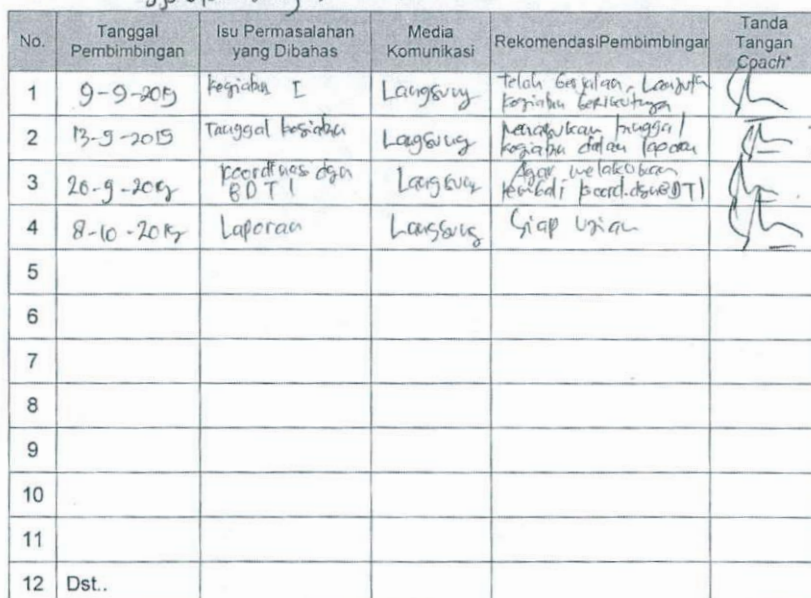 No. Tanggal Pembimbingan Isu Permasalahan yang Dibahas Media Komunikasi RekomendasiPembimbingan Tanda Tangan Coach*
1 9-9-2019 Kegiatan I Langsung telah berjalan, Lanjutkan kegiatan berikutnya
2 13-9-2019 Tanggal kegiatan Langsung tanggal kegiatan dalam laporan
3 20-9-2019 koordinasi dgn BDTI Langsung Agar melakukan kembali koord.dgn BDTI
4 8-10-2019 Laporan Langsung Siap Ujian
5
6
7
8
9
10
11
12 Dst..